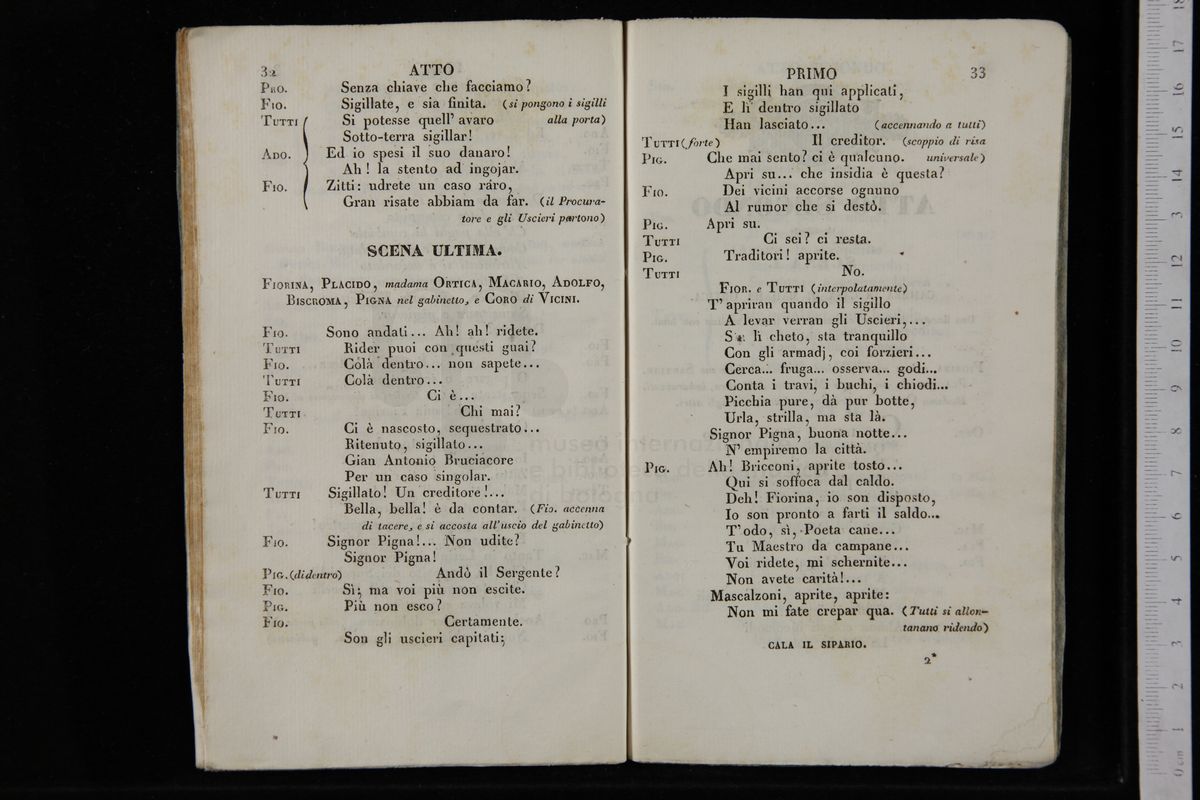 32 ATTO
PRO. Senza chiave che facciamo?
FIO. Sigillate, e sia finita. (si pongono i sigilli
TUTTI Si potesse quell' avaro alla porta)
Sotto-terra sigillar!
ADO. Ed io spesi il suo danaro!
Ah! la stento ad ingojar.
FIO. Zitti: udrete un caso raro,
Gran risate abbiam da far. (il Procura-
tore e gli Uscieri partono)
SCENA ULTIMA.
FIORINA, PLACIDO, madama ORTICA, MACARIO, ADOLFO,
BISCROMA, PIGNA nel gabinetto, e CORO di VICINI.
FIO. Sono andati... Ah! ah! ridete.
TUTTI Rider puoi con questi guai?
FIO. Colà dentro... non sapete...
TUTTI Colà dentro...
FIO. Ci è...
TUTTI Chi mai?
FIO. Ci è nascosto, sequestrato...
Ritenuto, sigillato...
Gian Antonio Bruciacore
Per un caso singolar.
TUTTI Sigillato! Un creditore!...
Bella, bella! è da contar. (Fio. accenna
di tacere, e si accosta all'uscio del gabinetto)
FIO. Signor Pigna!... Non udite?
Signor Pigna!
PIG. (didentro) Andò il Sergente?
FIO. Sì; ma voi più non escite.
PIG. Più non esco?
FIO. Certamente.
Son gli uscieri capitati;
PRIMO 33
I sigilli han qui applicati,
E lì dentro sigillato
Han lasciato... (accennando a tutti)
TUTTI (forte) Il creditor. (scoppio di risa
PIG. Che mai sento? ci è qualcuno. universale)
Apri su... che insidia è questa?
FIO. Dei vicini accorse ognuno
Al rumor che si destò.
PIG. Apri su.
TUTTI Ci sei? ci resta.
PIG. Traditori! aprite.
TUTTI No.
FIOR. e TUTTI (interpolatamente)
T' apriran quando il sigillo
A levar verran gli Uscieri,...
Sta lì cheto, sta tranquillo
Con gli armadj, coi forzieri...
Cerca... fruga... osserva... godi...
Conta i travi, i buchi, i chiodi...
Picchia pure, dà pur botte,
Urla, strilla, ma sta là.
Signor Pigna, buona notte...
N' empiremo la città.
PIG. Ah! Bricconi, aprite tosto...
Qui si soffoca dal caldo.
Deh! Fiorina, io son disposto,
Io son pronto a farti il saldo...
T' odo, sì, Poeta cane...
Tu Maestro da campane...
Voi ridete, mi schernite...
Non avete carità!...
Mascalzoni, aprite, aprite:
Non mi fate crepar qua. (Tutti si allon-
tanano ridendo)
CALA IL SIPARIO.
2*